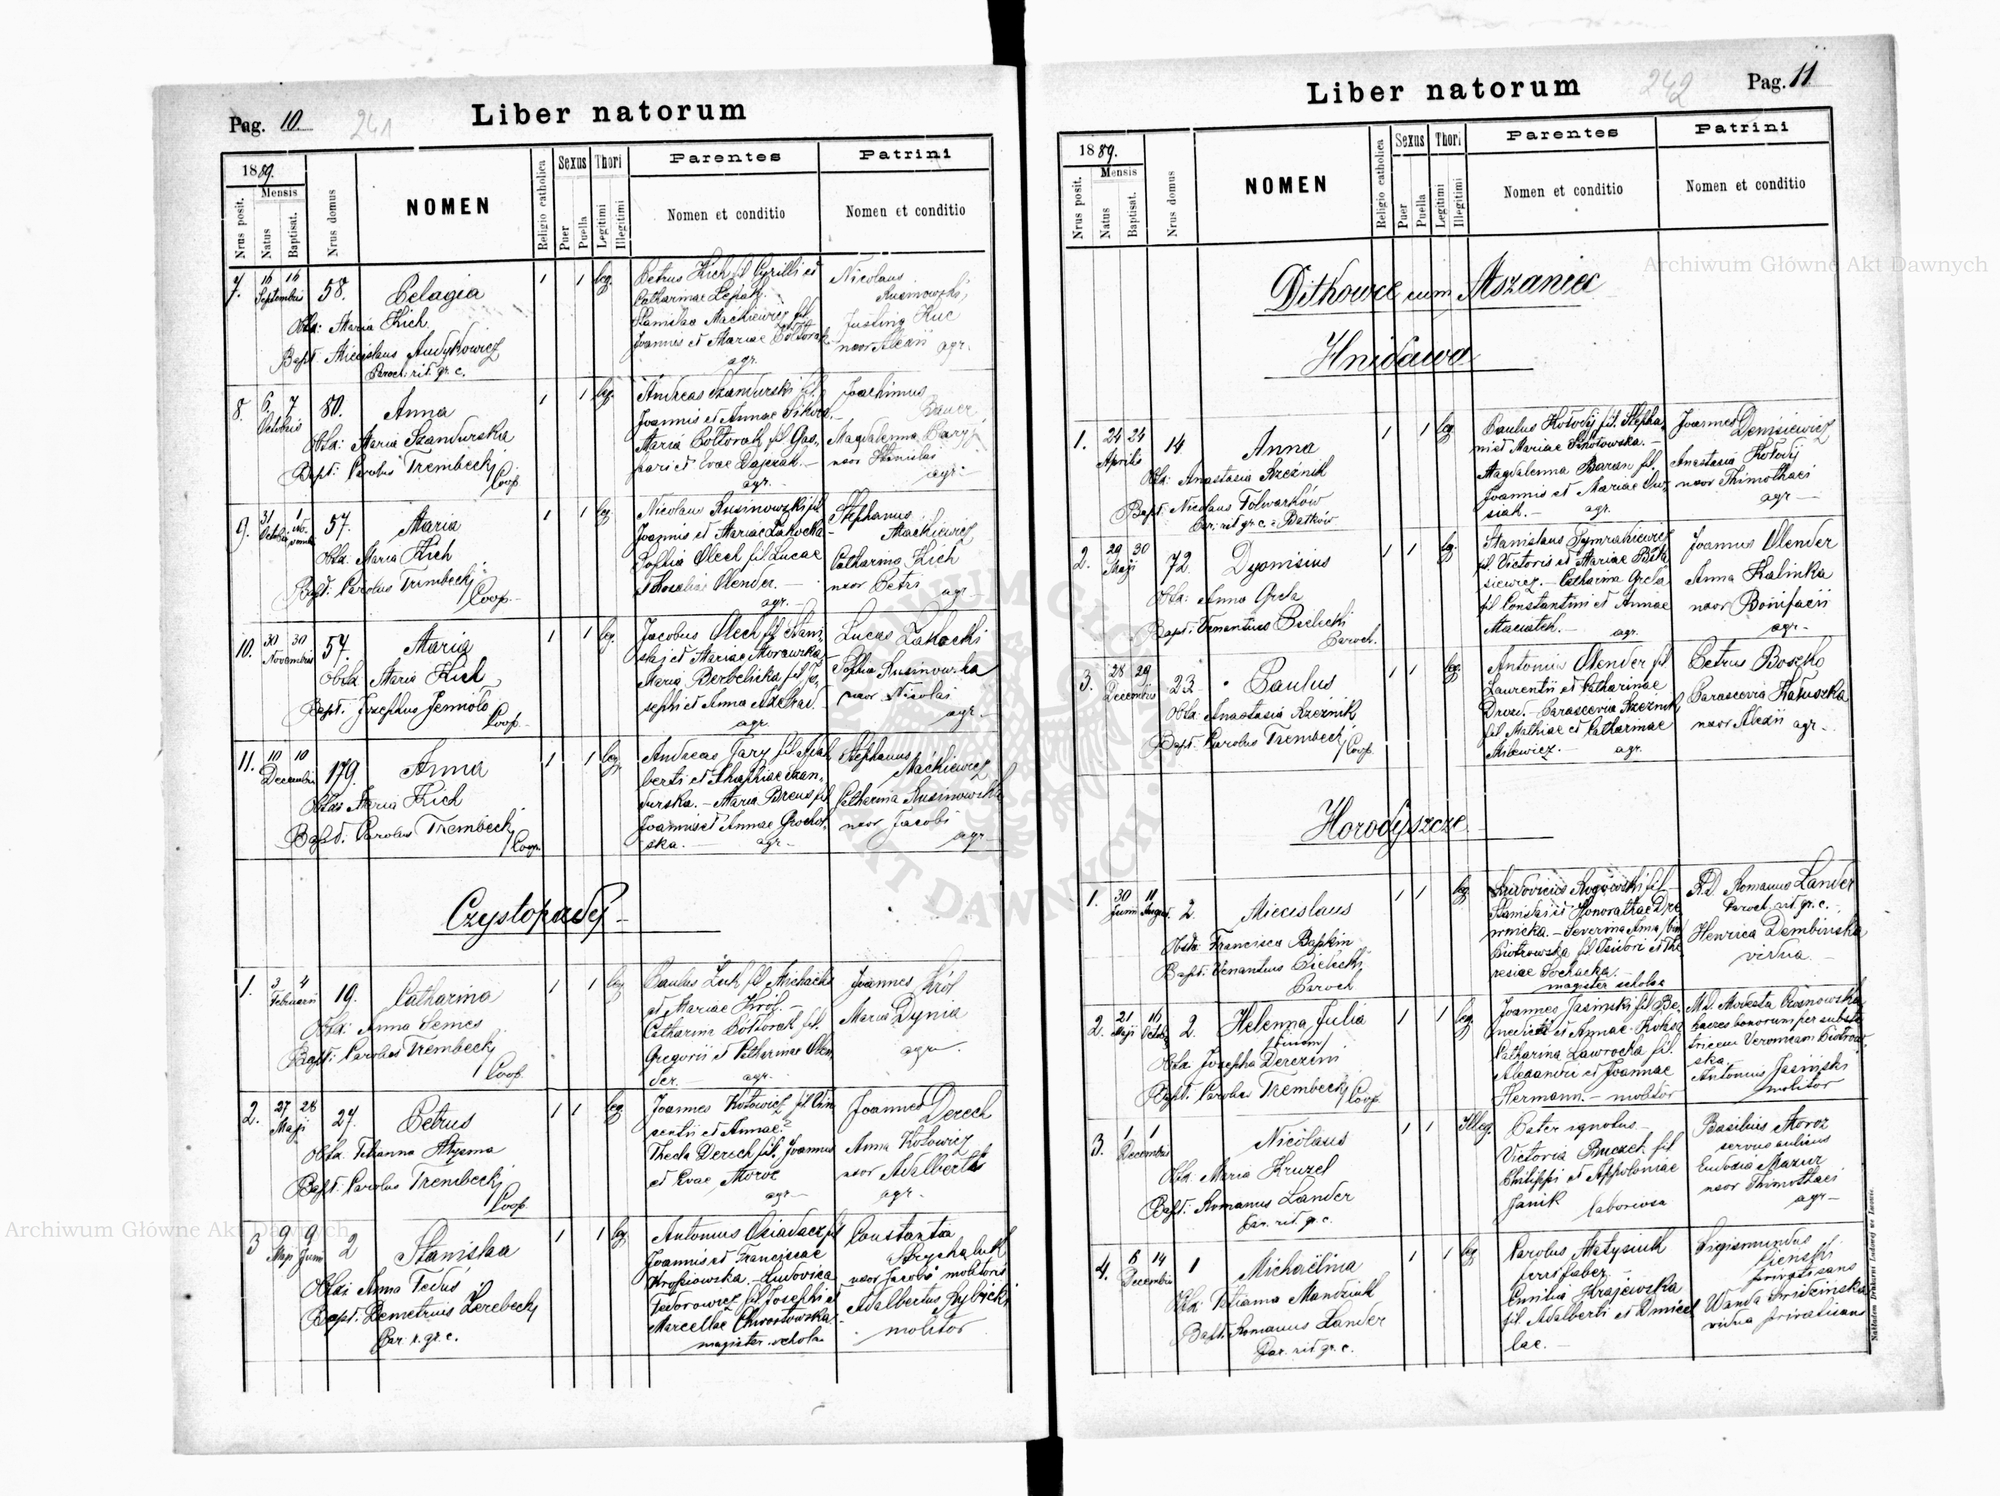 Pag. 10
241
Liber natorum
1889.
Mensis
Nrus posit.
Natus
Baptisat.
Nrus domus
NOMEN
Religio catholica
Sexus
Puer
Puella
Thori
Legitimi
Illegitimi
Parentes
Nomen et conditio
Patrini
Nomen et conditio
7. 16 16 Septembris 58. Pelagia 1 1 leg.
Obst: Maria Kich
Bapt: Miecislaus Andykowicz
Paroch. rit. gr. c.
Petrus Kich fil Cyrilli et
Catharinae
Stanislae Mackiewicz fil
Joannis et Mariae Półtorak
agr.
Nicolaus
Rusinowski
Justina Kuc
uxor Alexii agr.
8. 6 7 Octobris 80. Anna 1 1 leg.
Obst: Maria Szandurska
Bapt: Carolus Trembecki
Coop.
Andreas Szandurski fil
Joannis et Annae Sikora
Maria Półtorak fil Gas-
pari et Evae Dajczak.
agr.
Joachimus
Bauer
Magdalenna
uxor Stanislai
agr.
9. 31 Octobris 1 Novemb. 57. Maria 1 1 leg.
Obst: Maria Kich
Bapt: Carolus Trembecki
Coop.
Nicolaus Rusinowski fil
Joannis et Mariae Zahocka
Sophia Olech fil Lucae
et Rosaliae Olender.
agr.
Stephanus
Mackiewicz
Catharina Kich
uxor Petri agr.
10. 30 30 Novembris 57. Maria 1 1 leg.
Obst: Maria Kich
Bapt: Josephus Jemioło
Coop.
Jacobus Olech fil Stani-
slai et Mariae Morawska
Maria fil Jo-
sephi et Anna
agr.
Lucas Zahocki
Sophia Rusinowska
uxor Nicolai
agr.
11. 10 10 Decembris 179. Anna 1 1 leg.
Obst: Maria Kich
Bapt: Carolus Trembecki
Coop.
Andreas Jary fil Adal-
berti et Agaphiae Szan-
durska. – Maria Breus fil
Joannis et Annae Grochol-
ska. agr.
Stephanus
Mackiewicz
Catharina Rusinowska
uxor Jacobi
agr.
Czystopady
1. 3 4 Februarii 19. Catharina 1 1 leg.
Obst: Anna Semes
Bapt: Carolus Trembecki
Coop.
Paulus fil Michaelis
et Mariae Król.
Catharina Półtorak fil.
Gregorii et Catharinae Olen-
der. agr.
Joannes Król
Maria Dynia
agr.
2. 27 28 Maji 27. Petrus 1 1 leg.
Obst: Tekanna
Bapt: Carolus Trembecki
Coop.
Joannes Kotowicz fil Vin-
centii et Annae?
Thecla Derech fil. Joannis
et Evae Moroz
agr.
Joannes Derech
Anna Kotowicz
uxor Adalberti
agr.
3 9 Maji 9 Junii 2 Stanislaa 1 1 leg.
Obst: Anna Fedus
Bapt: Demetrius Zerebecki
Par. r. gr. c.
Antonius Osiadacz fil
Joannis et Franciscae
Ludovica
Fedorowicz fil Josephi et
Marcellae Chrostowska
magister schola
Constantia
uxor Jacobi molitoris
Adalbertus Rybicki
molitor
Liber natorum
242
Pag. 11
1889.
Mensis
Nrus posit.
Natus
Baptisat.
Nrus domus
NOMEN
Religio catholica
Sexus
Puer
Puella
Thori
Legitimi
Illegitimi
Parentes
Nomen et conditio
Patrini
Nomen et conditio
Ditkowce cum Mszaniec
Hnidawa
1. 24 24 Aprilis 14. Anna 1 1 leg.
Obst: Anastasia Rzeźnik
Bapt: Nicolaus Tolwarków
Par. rit. gr. c. Batków
Paulus Kołodij fil. Stepha-
ni et Mariae
Magdalenna Baran fil.
Joannis et Mariae
siak. agr.
Joannes Denisiewicz
Anastasia Kołodij
uxor Thimothaei
agr
2. 29 30 Maji 72. Dyonisius 1 1 leg.
Obst: Anna Greda
Bapt: Venantius Bielecki
Paroch.
Stanislaus Symrakiewicz
fil Victoris et Mariae
Catharina Greda
fil Constantini et Annae
agr.
Joannes Olender
Anna Kalinka
uxor Bonifacii
agr
3. 28 29 Decembris 23. Paulus 1 1 leg.
Obst: Anastasia Rzeznik
Bapt: Carolus Trembecki Coop.
Antonius Olender fil
Laurentii et Catharinae
Drozd. Parascevia Rzeznik
fil Mathiae et Catharinae
Milewicz. agr.
Petrus Boszko
Parascevia Katuszka
uxor Alexii agr.
Horodyszcze
1. 30 Junii 11 August. 2. Miecislaus 1 1 leg.
Obst: Francisca Bapkin
Bapt: Venantius Bielecki
Paroch
Ludovicus fil
Stanislai et Honorathae
Severina Anna
Piotrowska fil Isidori et The-
resiae Sochacka.
magister scholae
R.D. Romanus Lander
Paroch. rit. gr. c.
Henrica Dembińska
vidua
2. 21 Maji 16 Octob. 2. Helenna Julia 1 1 leg.
Obst: Josepha Derezin
Bapt: Carolus Trembecki Coop.
Joannes Jasinski fil Be-
nedicti et Annae
Catharina Lawrocka fil.
Alexandri et Joannae
Hermann. – molitor
haeres bonorum per substi-
tricem Veronicam Piotrow-
ska
Antonius Jasinski
molitor
3. 1 1 Decembris Nicolaus 1 1 Illeg.
Obst: Maria Kruzel
Bapt: Romanus Lander
Par. rit. gr. c.
Pater ignotus
Victoria Buczek fil
Philippi et Appoloniae
Janik laboriosa
Basilius Moroz
servus aulicus
Eudoxia Mazur
uxor Thimothaei
agr
4. 6 14 Decembris 1 Michaëlina 1 1 leg
Obst: Tatianna Mandziuk
Bapt: Romanus Lander
Par. rit. gr. c.
Carolus Matysiuk
ferrifaber
Emilia Krajewska
fil. Adalberti et
lae.
Sigismundus
privatisans
Wanda
vidua privatisans
Nakładem Drukarni Ludowej we Lwowie.
Archiwum Główne Akt Dawnych
Archiwum Główne Akt Dawnych